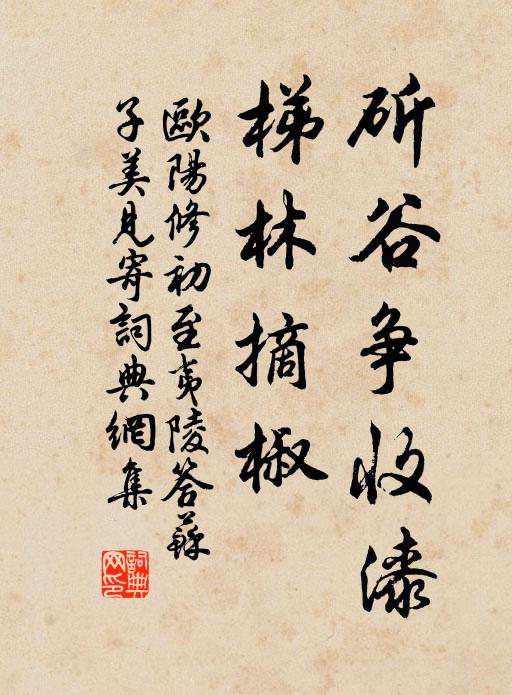 斫谷争收漆
梯林摘椒
歐陽修初至夷陵答蘇
子美見寄詞典網集
詞典
网印